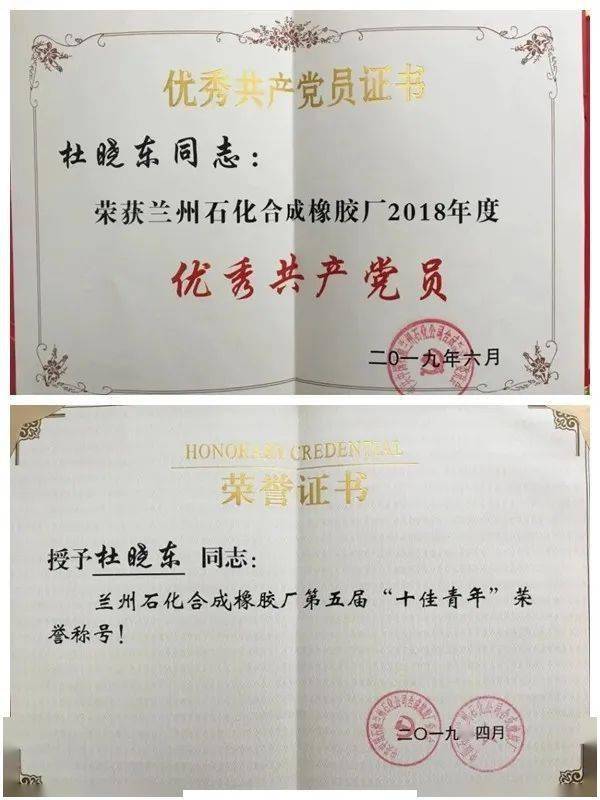 优秀共产党员证书
杜晓东同志：
荣获兰州石化合成橡胶厂2018年度
优秀共产党员
二〇一九年六月
HONORARY CREDENTIAL
荣誉证书
授予杜晓东 同志：
兰州石化合成橡胶厂第五届“十佳青年”荣
誉称号！
二〇一九 四月